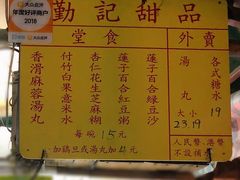 大众点评
年度好评商户
2018
勤記甜品
堂食
外賣
蓮子百合綠豆沙
蓮子百合紅豆沙
杏仁花生芝麻糊
付竹白果意米水
香滑麻蓉湯丸
每碗15元
加鷄旦或湯丸加4元
各式糖水
19
湯丸
大小
23.19
人民幣.港幣
不設補